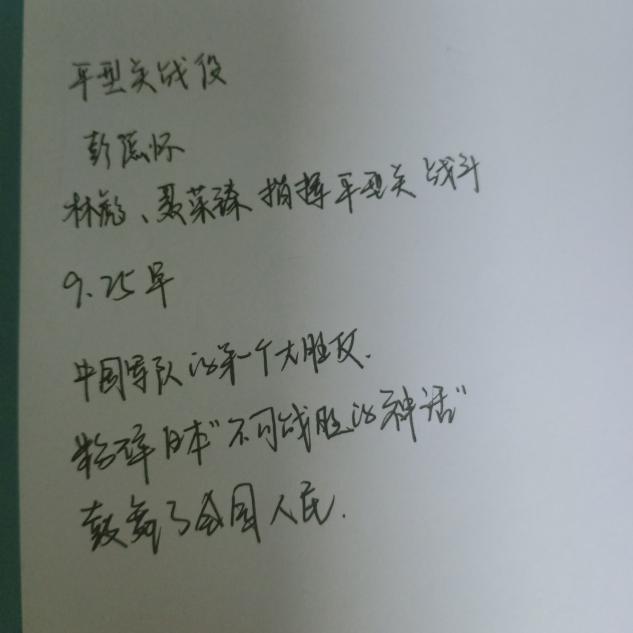 平型关战役
彭德怀
林彪、聂荣臻 指挥平型关战斗
9.25早
中国军队的第一个大胜仗.
粉碎日本"不可战胜的神话"
鼓舞了全国人民.